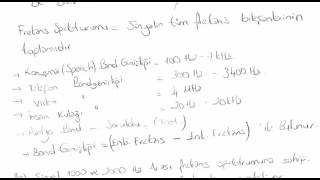 Frekans Spektrumu = Sinyalin tüm frekans bileşenlerinin
toplamıdır
→ Konuşma (Speech) Band Genişliği = 100 Hz - 7 kHz
→ Telefon Bandgenişliği = 300 Hz - 3400 Hz
→ Video " = 4 MHz
→ İnsan Kulağı " = 20 Hz - 20 kHz
→ Band Genişliği = (Enb. Frekans - Enk. Frekans) ile Bulunur.
Sinyal 1000 ve 2000 Hz arası frekans spektrumuna sahip